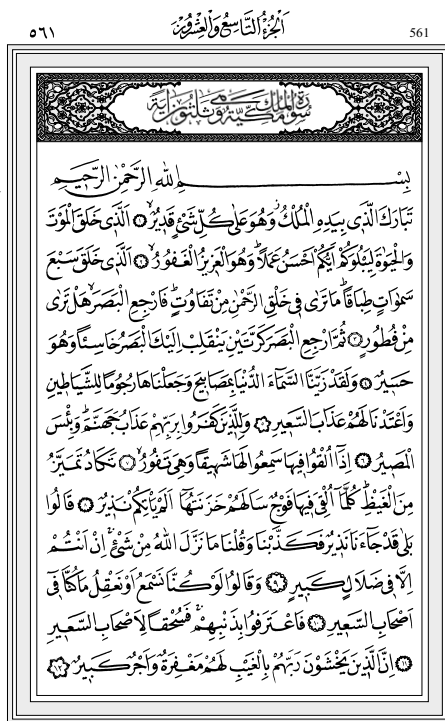 ٥٦١ الجزء التاسع والعشرون 561
سورة الملك مكية وهى ثلثون اية
بِسْمِ اللهِ الرَّحْمٰنِ الرَّحِيمِ
تَبَارَكَ الَّذٖى بِيَدِهِ الْمُلْكُ وَهُوَ عَلٰى كُلِّ شَىْءٍ قَدٖيرٌۙ ﴿١﴾ اَلَّذٖى خَلَقَ الْمَوْتَ
وَالْحَيٰوةَ لِيَبْلُوَكُمْ اَيُّكُمْ اَحْسَنُ عَمَلًاؕ وَهُوَ الْعَزٖيزُ الْغَفُورُۙ ﴿٢﴾ اَلَّذٖى خَلَقَ سَبْعَ
سَمٰوَاتٍ طِبَاقًاؕ مَا تَرٰى فٖى خَلْقِ الرَّحْمٰنِ مِنْ تَفَاوُتٍؕ فَارْجِعِ الْبَصَرَۙ هَلْ تَرٰى
مِنْ فُطُورٍ ﴿٣﴾ ثُمَّ ارْجِعِ الْبَصَرَ كَرَّتَيْنِ يَنْقَلِبْ اِلَيْكَ الْبَصَرُ خَاسِئًا وَهُوَ
حَسٖيرٌ ﴿٤﴾ وَلَقَدْ زَيَّنَّا السَّمَاءَ الدُّنْيَا بِمَصَابٖيحَ وَجَعَلْنَاهَا رُجُومًا لِلشَّيَاطٖينِ
وَاَعْتَدْنَا لَهُمْ عَذَابَ السَّعٖيرِ ﴿٥﴾ وَلِلَّذٖينَ كَفَرُوا بِرَبِّهِمْ عَذَابُ جَهَنَّمَؕ وَبِئْسَ
الْمَصٖيرُ ﴿٦﴾ اِذَا اُلْقُوا فٖيهَا سَمِعُوا لَهَا شَهٖيقًا وَهِىَ تَفُورُۙ ﴿٧﴾ تَكَادُ تَمَيَّزُ
مِنَ الْغَيْظِؕ كُلَّمَا اُلْقِىَ فٖيهَا فَوْجٌ سَاَلَهُمْ خَزَنَتُهَا اَلَمْ يَاْتِكُمْ نَذٖيرٌ ﴿٨﴾ قَالُوا
بَلٰى قَدْ جَاءَنَا نَذٖيرٌ فَكَذَّبْنَا وَقُلْنَا مَا نَزَّلَ اللهُ مِنْ شَىْءٍۚ اِنْ اَنْتُمْ
اِلَّا فٖى ضَلَالٍ كَبٖيرٍ ﴿٩﴾ وَقَالُوا لَوْ كُنَّا نَسْمَعُ اَوْ نَعْقِلُ مَا كُنَّا فٖى
اَصْحَابِ السَّعٖيرِ ﴿١٠﴾ فَاعْتَرَفُوا بِذَنْبِهِمْۚ فَسُحْقًا لِاَصْحَابِ السَّعٖيرِ
﴿١١﴾ اِنَّ الَّذٖينَ يَخْشَوْنَ رَبَّهُمْ بِالْغَيْبِ لَهُمْ مَغْفِرَةٌ وَاَجْرٌ كَبٖيرٌ ﴿١٢﴾